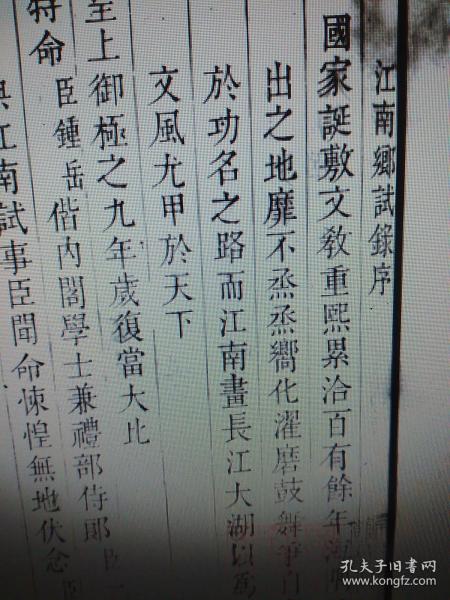 江南鄉試錄序
國家誕敷文教重熙累洽百有餘年海
出之地靡不烝烝嚮化濯磨鼓舞爭自
於功名之路而江南畫長江大湖以為
文風尤甲於天下
至上御極之九年歲復當大比
特命臣鍾岳偕內閣學士兼禮部侍郎臣
江南試事臣聞命悚惶無地伏念臣
孔夫子旧书网
www.kongfz.com